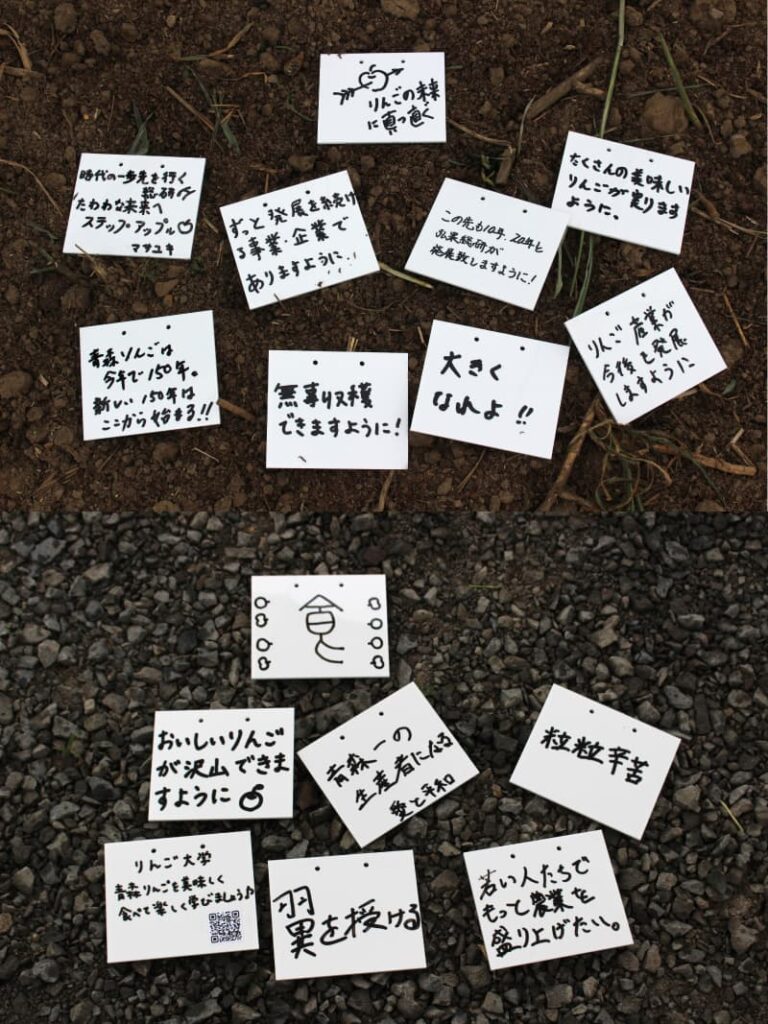 りんごの未来
に真っ直ぐ
時代の一歩先を行く
総研
たわわな未来へ
ステップ・アップル
マサユキ
ずっと発展を続け
る事業・企業で
ありますように
この先も10年、20年と
弘果総研が
発展致しますように!
たくさんの美味しい
りんごが実ります
ように。
青森りんごは
今年で150年。
新しい150年は
ここから始まる!!
無事収穫
できますように!
大きく
なれよ!!
りんご産業が
今後も発展
しますように
食
おいしいりんご
が沢山できま
すように
青森一の
生産者になる
愛と平和
粒粒辛苦
りんご大学
青森りんごを美味しく
食べて楽しく学びましょう♪
翼を授ける
若い人たちで
もって農業を
盛り上げたい。